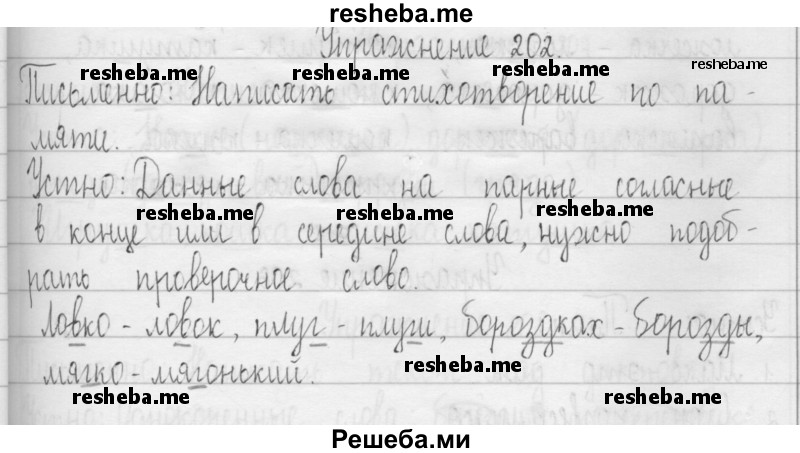 resheba.me
Упражнение 202.
resheba.me resheba.me resheba.me
Письменно: Написать стихотворение по па-
resheba.me resheba.me
мяти.
Устно: Данные слова на парные согласные
resheba.me resheba.me resheba.me
в конце или в середине слова, нужно подоб-
рать проверочное слово.
Ловко - ловок, плуг - плуги, бороздках - борозды,
resheba.me
мягко - мягонький.
resheba.me resheba.me
Решеба.ми